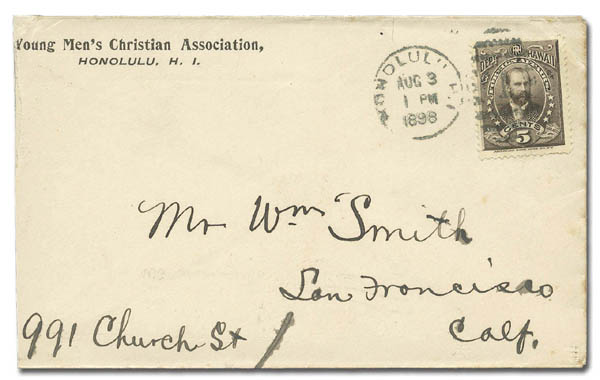 Young Men's Christian Association,
HONOLULU, H. I.
HONOLULU H.I.
AUG 3
1 PM
1898
DEPT HAWAII
FOREIGN AFFAIRS
5
CENTS
Mr Wm Smith
San Francisco
991 Church St
Calf.